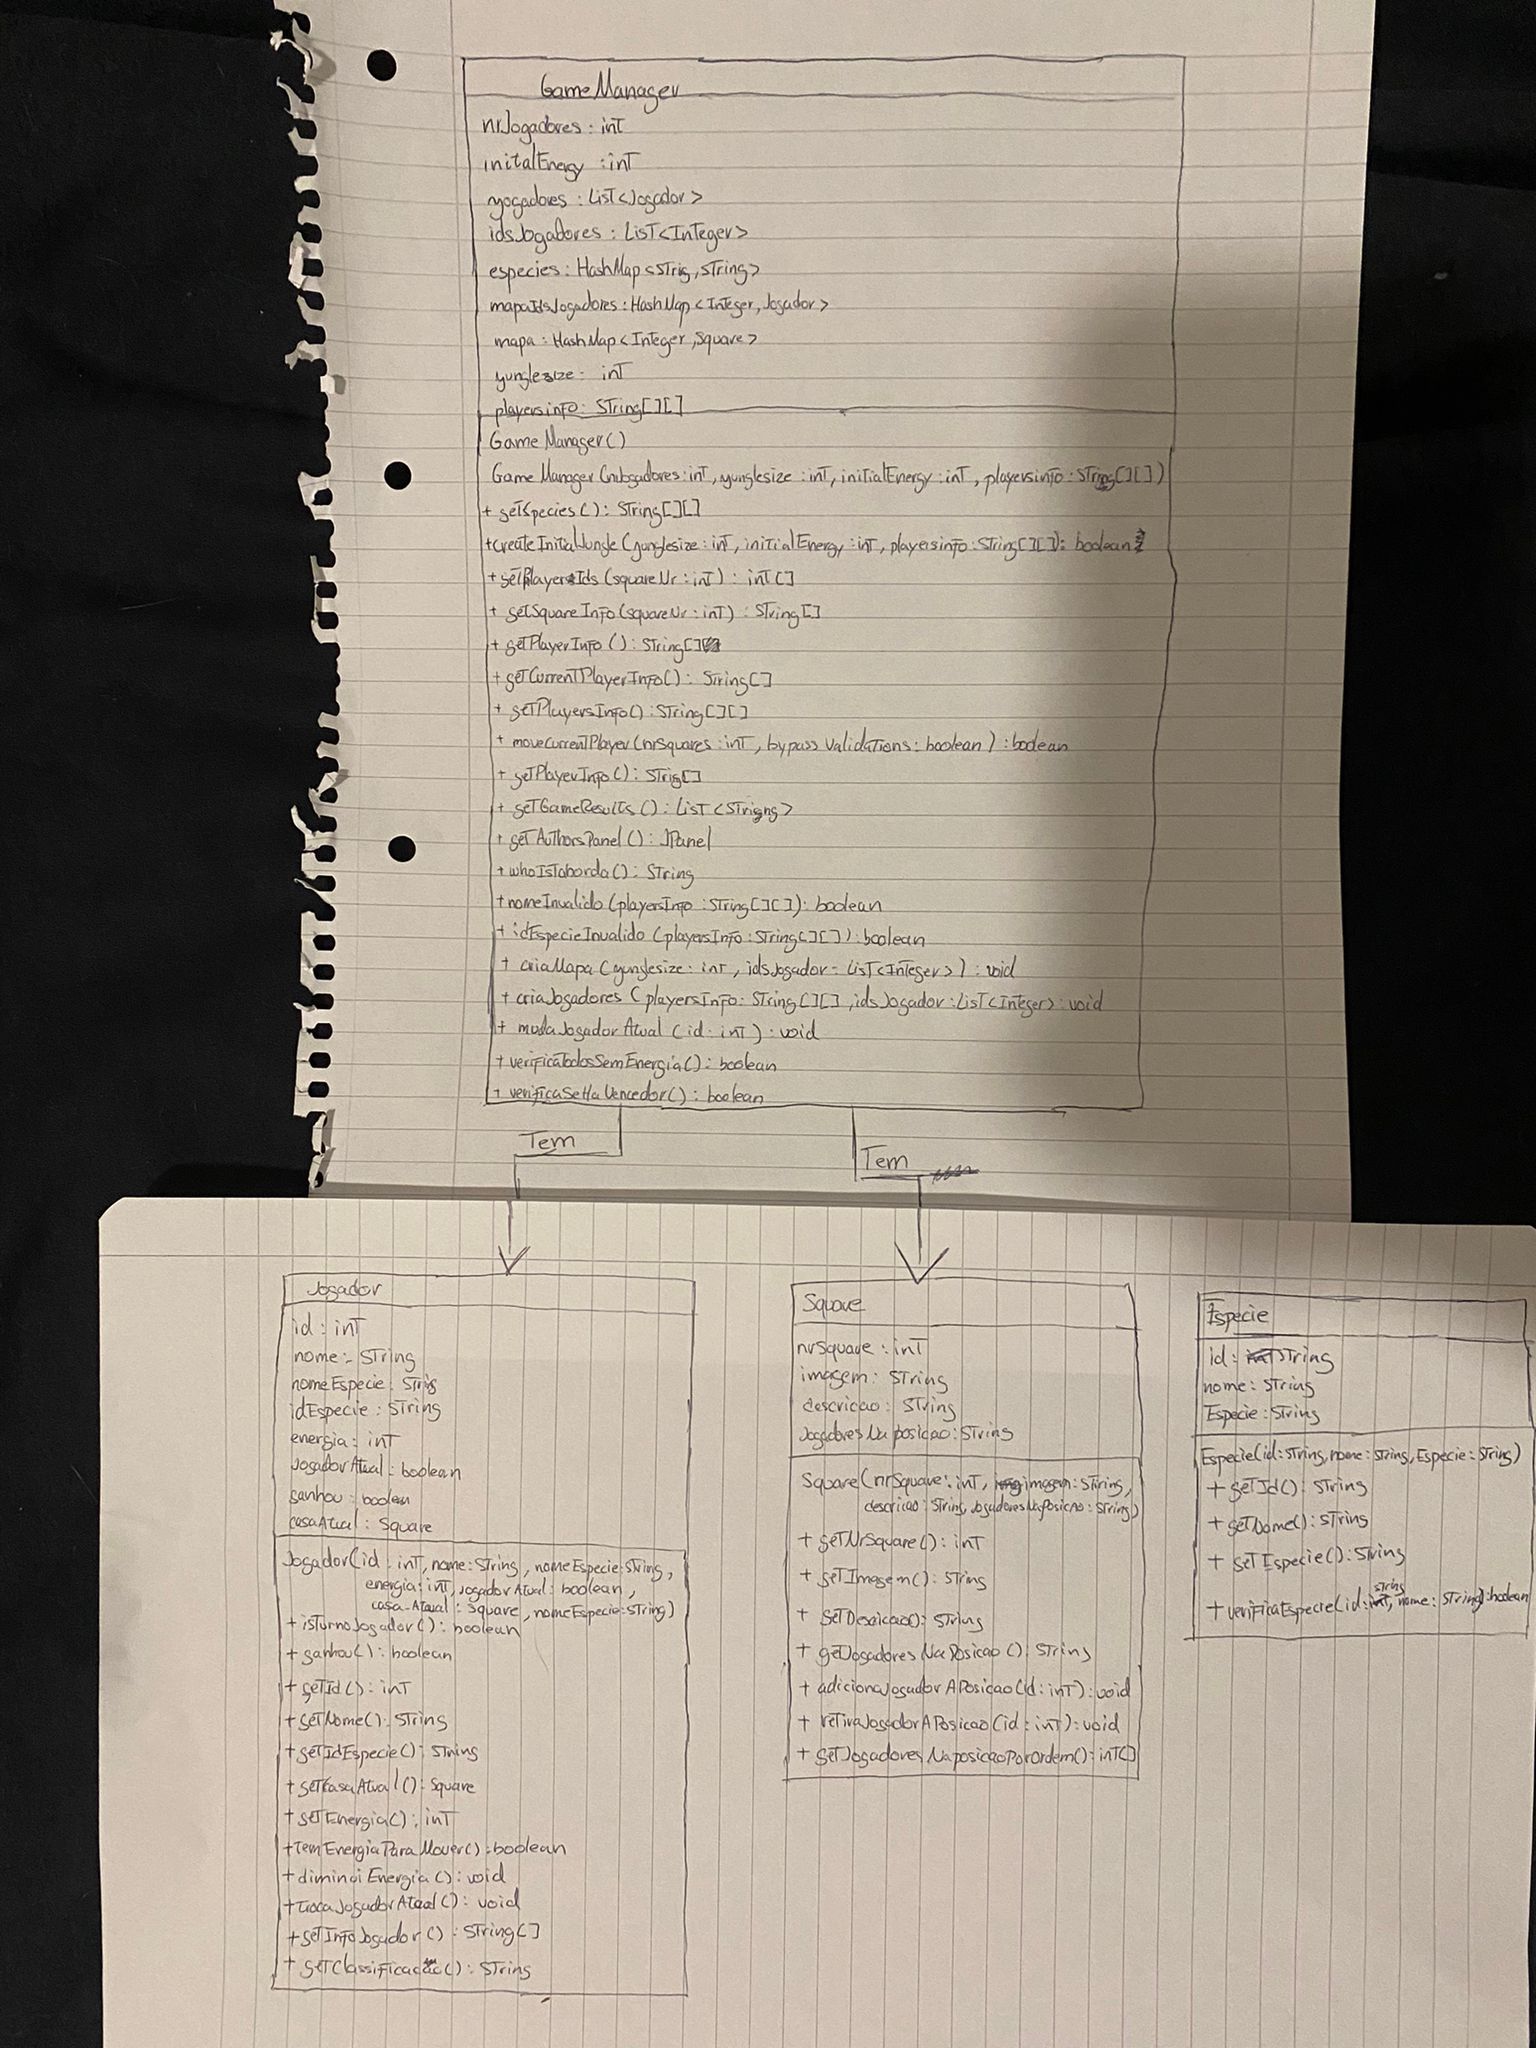 GameManager
nrJogadores : int
initalEnergy : int
yogadores : List<Jogador>
idsJogadores : List<Integer>
especies : HashMap<Strig, String>
mapaIdsJogadores : HashMap<Integer, Jogador>
mapa : HashMap<Integer, Square>
yunglesize : int
playersinfo : String[][]
GameManager()
GameManager(nrJogadores : int, yunglesize : int, initialEnergy : int, playersinfo : String[][])
+ getSpecies() : String[][]
+ createInitialJungle(yunglesize : int, initialEnergy : int, playersinfo : String[][]) : boolean
+ getPlayerIds(squareNr : int) : int[]
+ getSquareInfo(squareNr : int) : String[]
+ getPlayerInfo() : String[]
+ getCurrentPlayerInfo() : String[]
+ getPlayersInfo() : String[][]
+ moveCurrentPlayer(nrSquares : int, bypassValidations : boolean) : boolean
+ getPlayerInfo() : Strig[]
+ getGameResults() : List<String>
+ getAuthorsPanel() : JPanel
+ whoIsTaborda() : String
+ nomeInvalido(playersInfo : String[][]) : boolean
+ idEspecieInvalido(playersInfo : String[][]) : boolean
+ criaMapa(yunglesize : int, idsJogador = List<Integer>) : void
+ criaJogadores(playersInfo : String[][], idsJogador : List<Integer>) : void
+ mudaJogadorAtual(id : int) : void
+ verificaTodosSemEnergia() : boolean
+ verificaSeHaVencedor() : boolean
Tem
Tem
Jogador
id : int
nome : String
nomeEspecie : String
idEspecie : String
energia : int
JogadorAtual : boolean
ganhou : boolean
casaAtual : Square
Jogador(id : int, nome : String, nomeEspecie : String,
energia : int, JogadorAtual : boolean,
casa-Atual : Square, nomeEspecie : String)
+ isTurnoJogador() : boolean
+ ganhou() : boolean
+ getId() : int
+ getNome() : String
+ getIdEspecie() : String
+ getCasaAtual() : Square
+ getEnergia() : int
+ temEnergiaParaMover() : boolean
+ diminoiEnergia() : void
+ trocaJogadorAtual() : void
+ getInfoJogador() : String[]
+ getClassificacao() : String
Square
nrSquare : int
imagem : String
descricao : String
JogadoresNaposicao : String
Square(nrSquare : int, imagem : String,
descricao : String, JogadoresNaPosicao : String)
+ getNrSquare() : int
+ getImagem() : String
+ getDescricao() : String
+ getJogadoresNaPosicao() : String
+ adicionaJogadorAPosicao(id : int) : void
+ retiraJogadorAPosicao(id : int) : void
+ getJogadoresNaposicaoPorOrdem() : int[]
Especie
id : String
nome : String
Especie : String
Especie(id : String, nome : String, Especie : String)
+ getId() : String
+ getNome() : String
+ getEspecie() : String
+ verificaEspecie(id : string, nome : String) : boolean